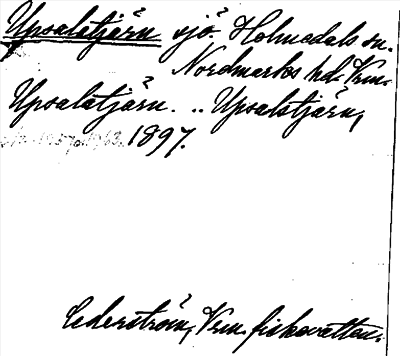 Upsalatjärn sjö. Holmedals sn.
Nordmarks hd. Vrm.
Upsalatjärn. .. Upsalstjärn,
1897.
Cederström, Vrm. fiskevatten.